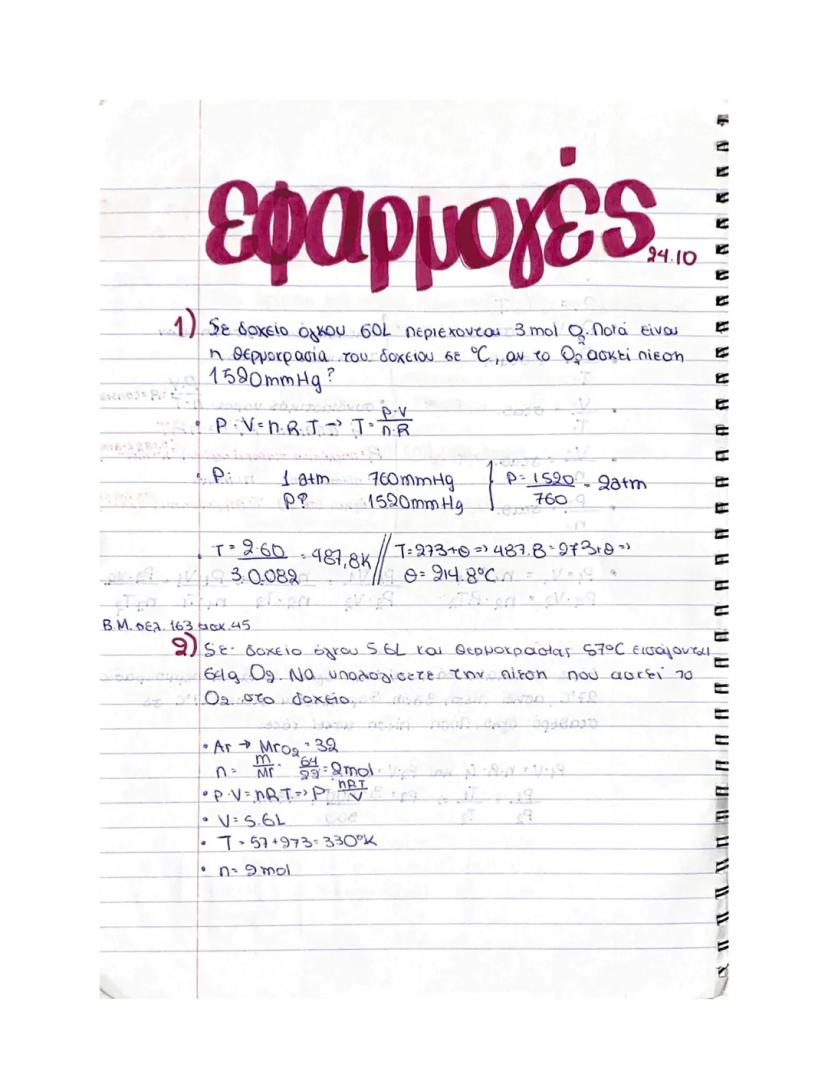 εφαρμογές
24.10
1) Σε δοχείο όγκου 60L περιέχονται 3 mol O2. Ποια είναι
η θερμοκρασία του δοχείου σε °C, αν το O2 ασκεί πίεση
1520mmHg?
• P·V=n.R.T→ T=P·V/n·R
• P: 1 atm 760mmHg } P=1520/760=2atm
P? 1520mmHg
• T=2·60/3.0.082=487,8K // T=273+θ=>487.8=273+θ=>
θ=214.8°C
Β.Μ. σελ. 163 ασκ.45
2) Σε δοχείο όγκου 5.6L και θερμοκρασίας 57°C εισάγονται
64g O2. Να υπολογίσετε την πίεση που ασκεί το
O2 στο δοχείο.
• Ar → MrO2=32
n=m/Mr=64/32=2mol
• P·V=nRT=>P=nRT/V
• V=5.6L
• T=57+273=330°K
• n=2mol